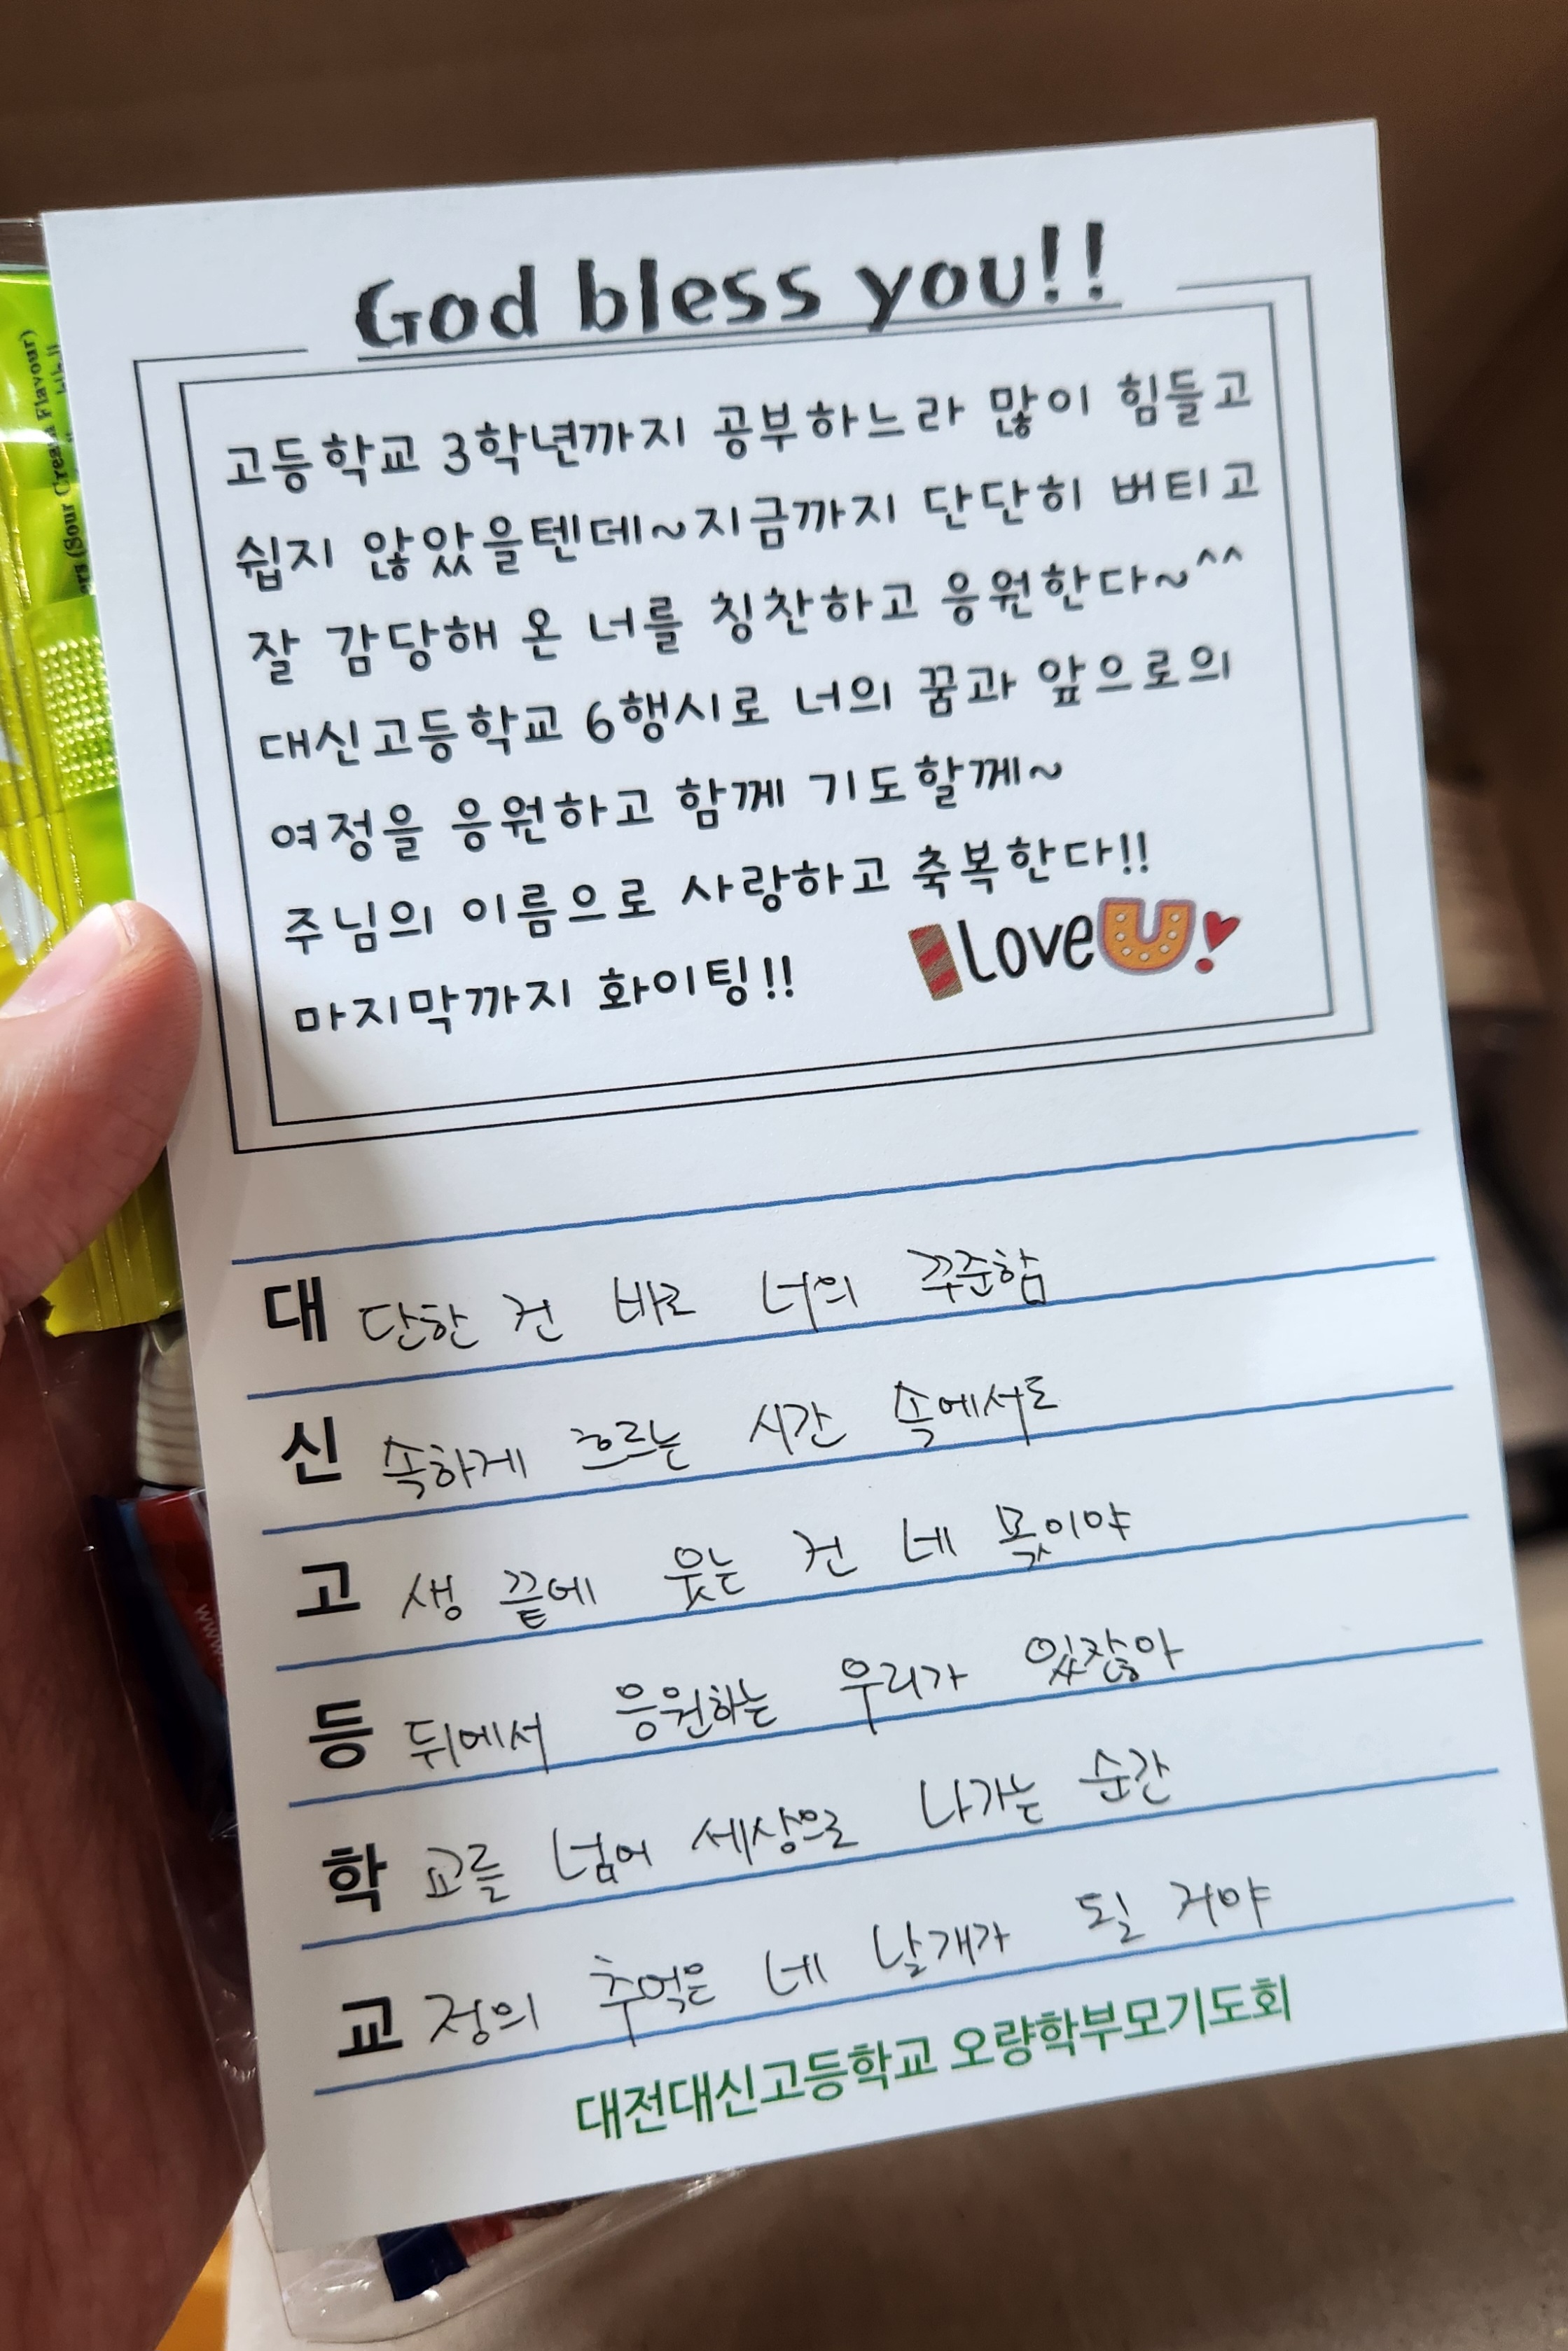 God bless you!!
고등학교 3학년까지 공부하느라 많이 힘들고
쉽지 않았을텐데~지금까지 단단히 버티고
잘 감당해 온 너를 칭찬하고 응원한다~^^
대신고등학교 6행시로 너의 꿈과 앞으로의
여정을 응원하고 함께 기도할께~
주님의 이름으로 사랑하고 축복한다!!
마지막까지 화이팅!!
I Love U!
대 단한 건 바로 너의 꾸준함
신 속하게 흐르는 시간 속에서도
고 생 끝에 웃는 건 네 몫이야
등 뒤에서 응원하는 우리가 있잖아
학 교를 넘어 세상으로 나가는 순간
교 정의 추억은 네 날개가 될 거야
대전대신고등학교 오량학부모기도회
(Sour Cream Flavour)
www.